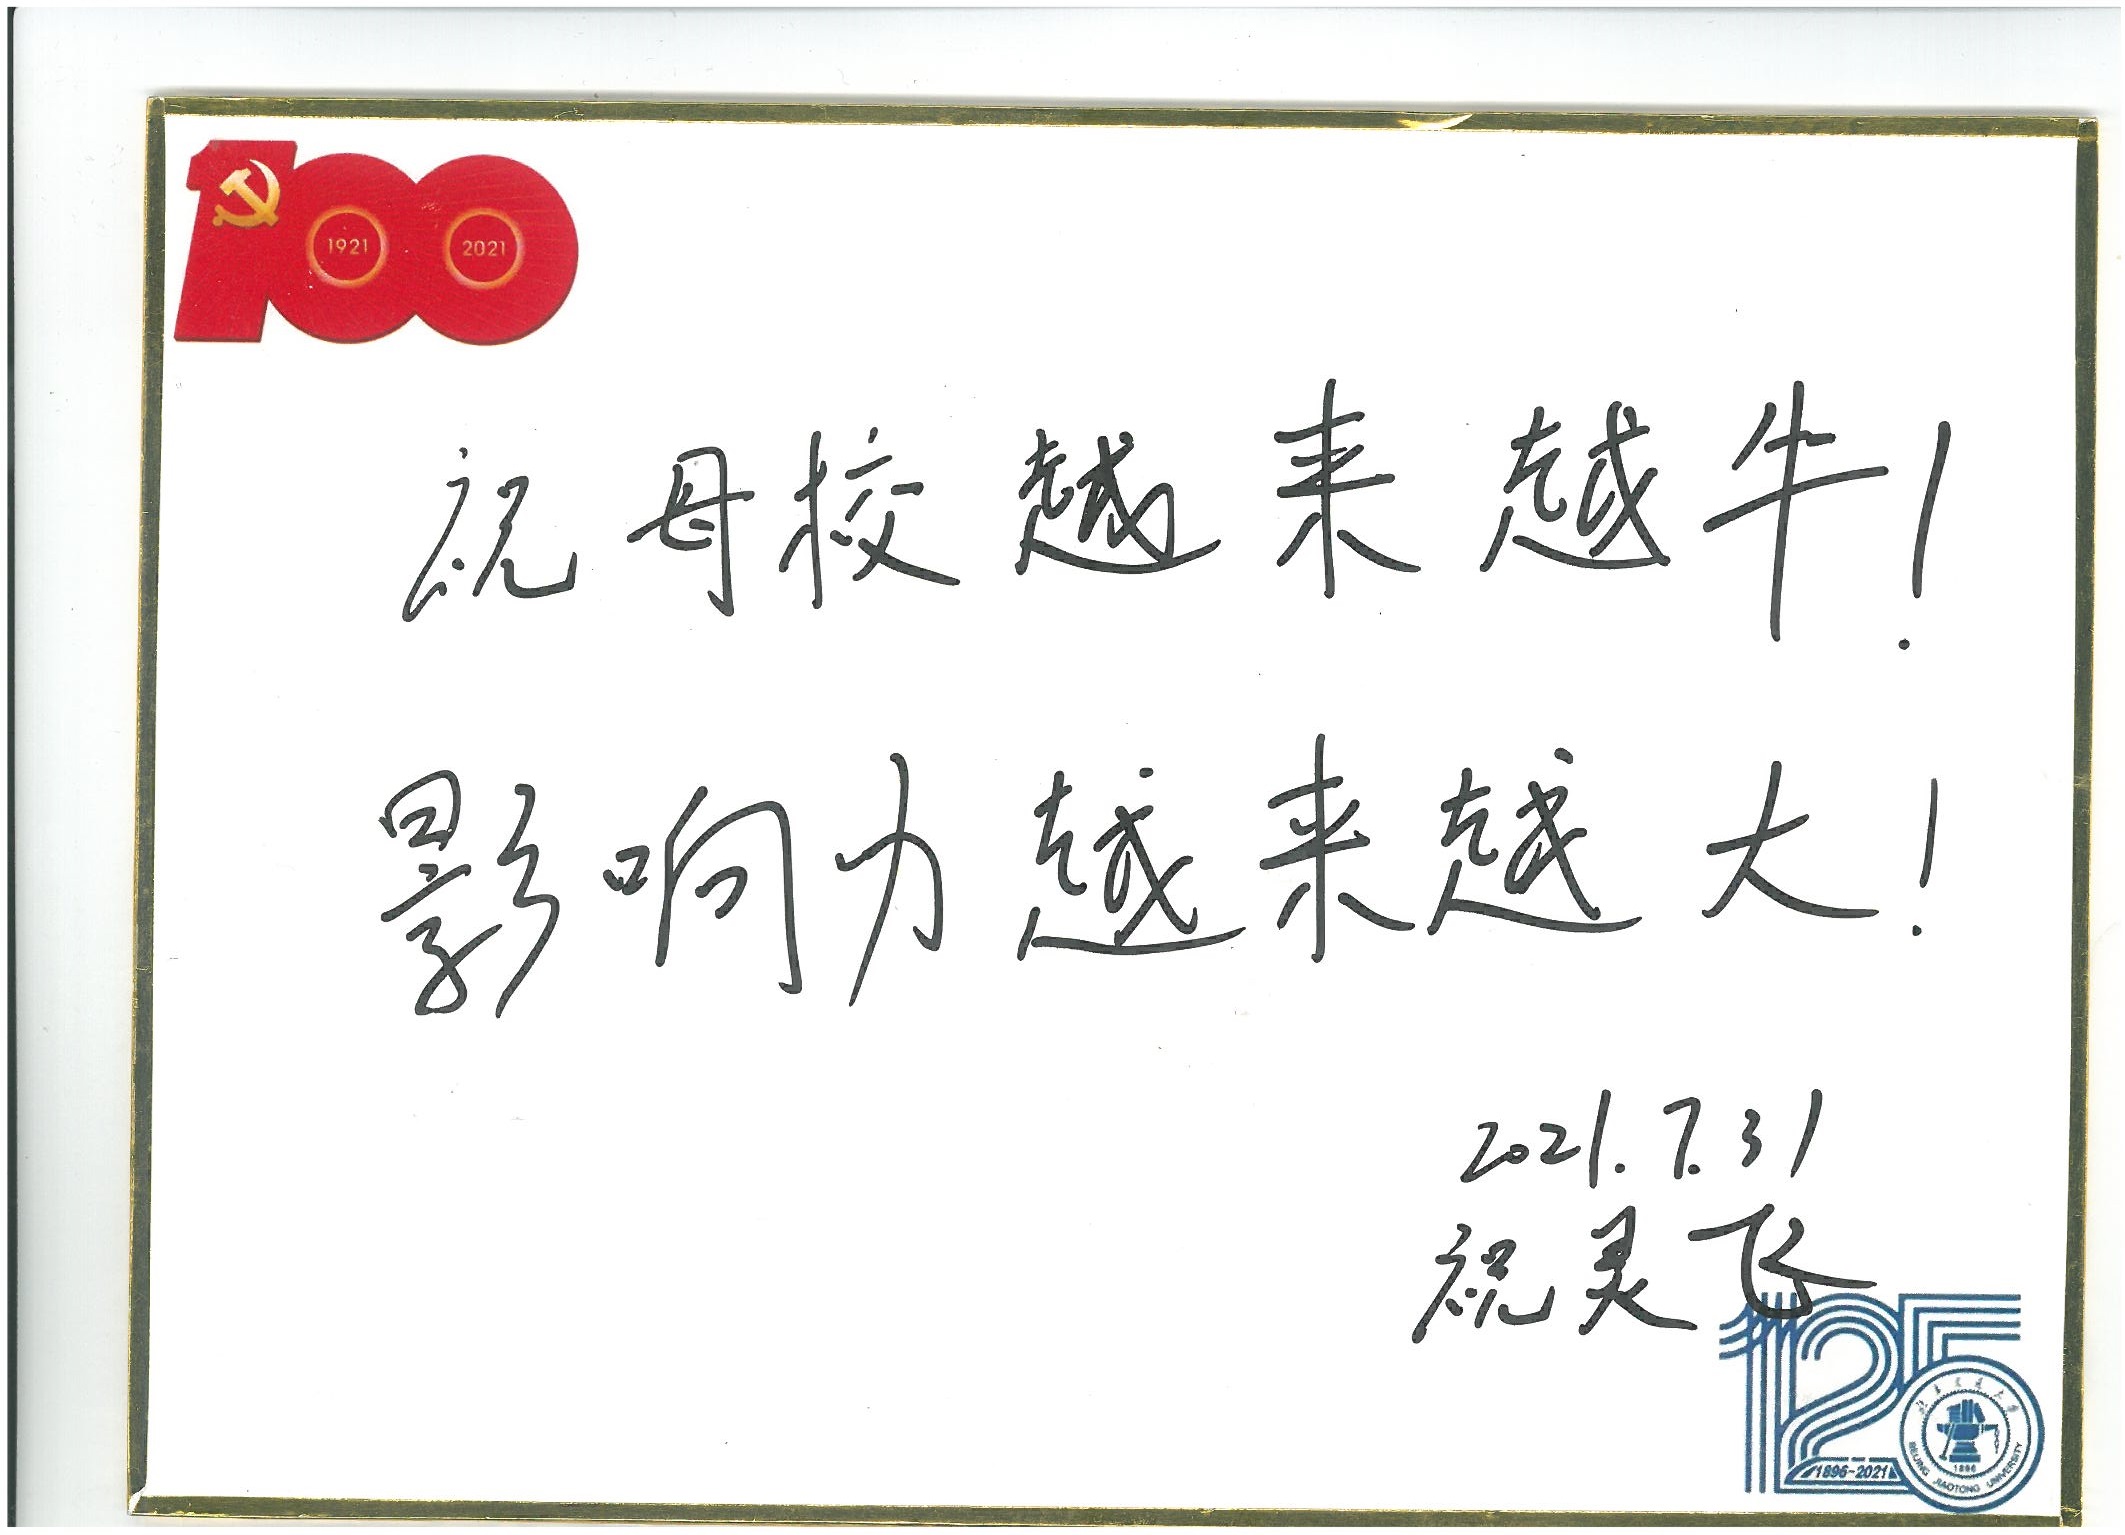 100
1921 2021
祝母校越来越牛!
影响力越来越大!
2021.7.31
祝灵飞
125
1896-2021
北京交通大学
1896
BEIJING JIAOTONG UNIVERSITY